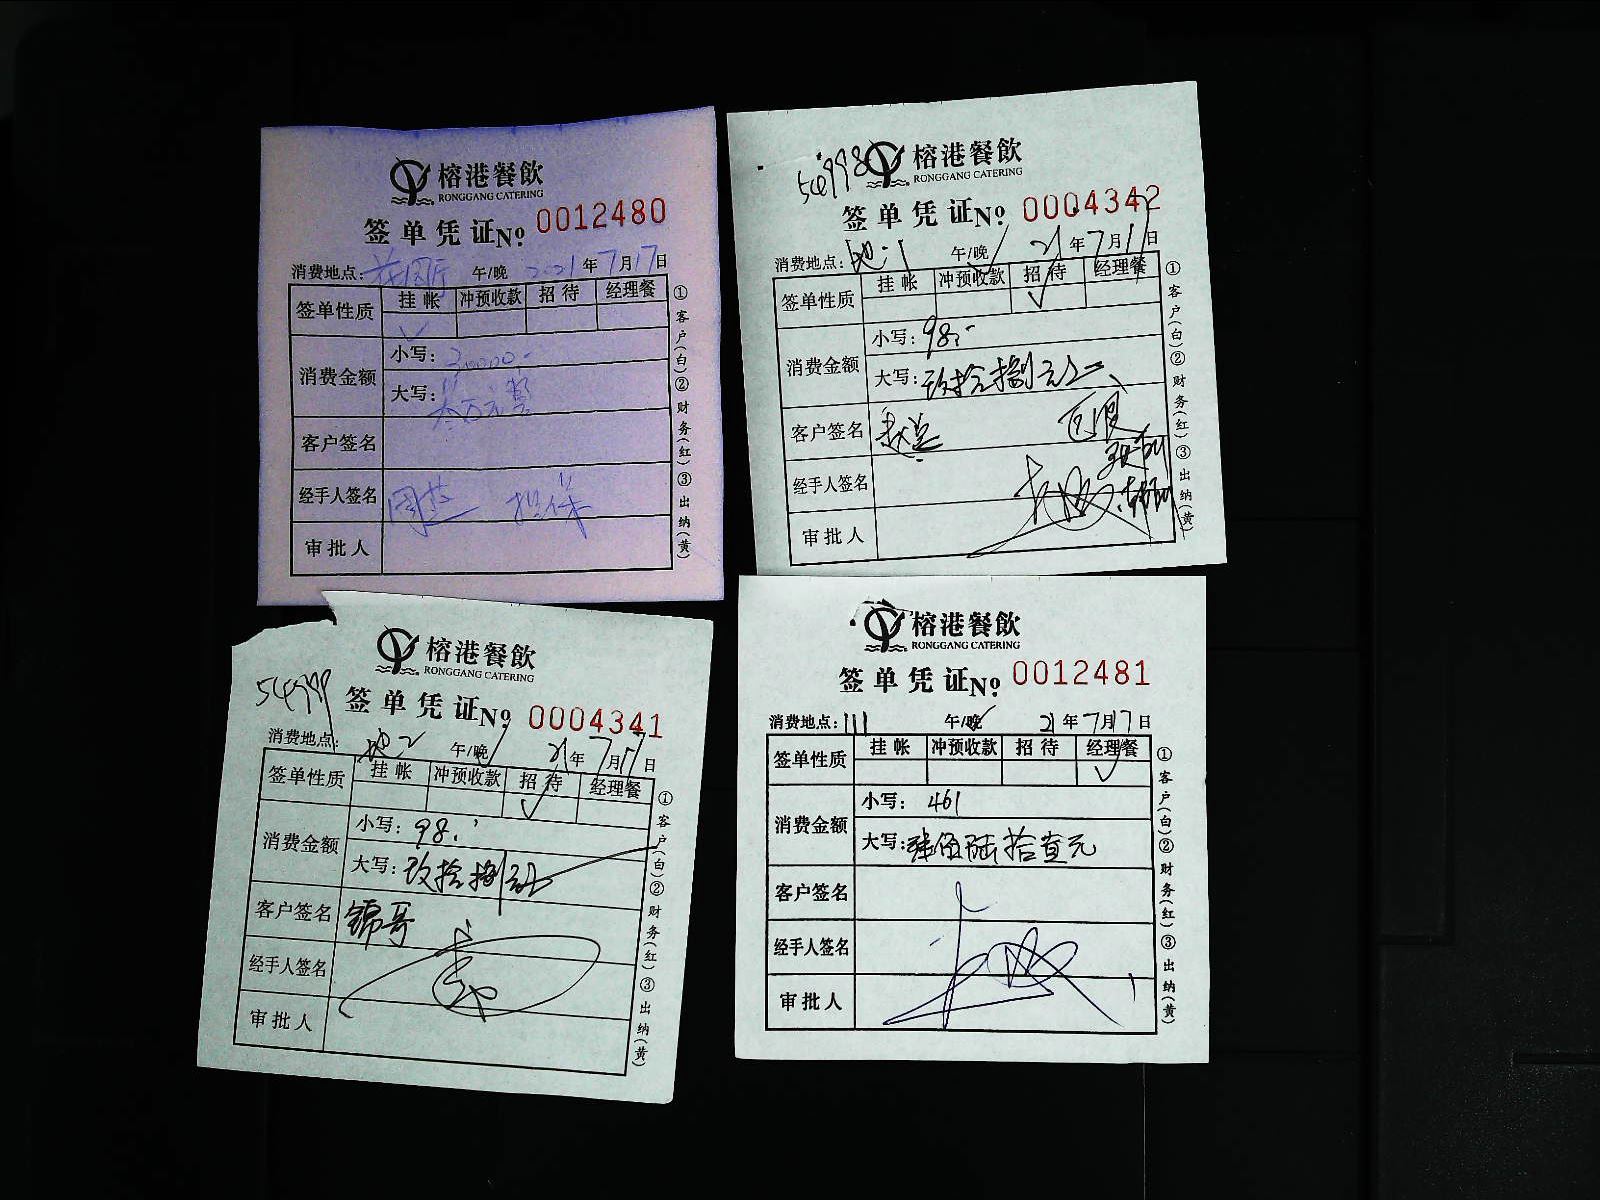 榕港餐飲
RONGGANG CATERING
签单凭证 No. 0012480
消费地点: 午/晚 2021年7月17日
签单性质 挂帐 冲预收款 招待 经理餐
✓
消费金额 小写:
大写:
客户签名
经手人签名 担保
审批人
①客户(白)②财务(红)③出纳(黄)
54998
榕港餐飲
RONGGANG CATERING
签单凭证 No. 0004342
消费地点: 午/晚 21年7月17日
签单性质 挂帐 冲预收款 招待 经理餐
✓
消费金额 小写: 98.-
大写: 玖拾捌元
客户签名
经手人签名
审批人
①客户(白)②财务(红)③出纳(黄)
54999
榕港餐飲
RONGGANG CATERING
签单凭证 No. 0004341
消费地点: 午/晚 21年7月17日
签单性质 挂帐 冲预收款 招待 经理餐
✓
消费金额 小写: 98.-
大写: 玖拾捌元
客户签名 锦哥
经手人签名
审批人
①客户(白)②财务(红)③出纳(黄)
榕港餐飲
RONGGANG CATERING
签单凭证 No. 0012481
消费地点: 111 午/晚 21年7月17日
签单性质 挂帐 冲预收款 招待 经理餐
✓
消费金额 小写: 461
大写: 肆佰陆拾壹元
客户签名
经手人签名
审批人
①客户(白)②财务(红)③出纳(黄)